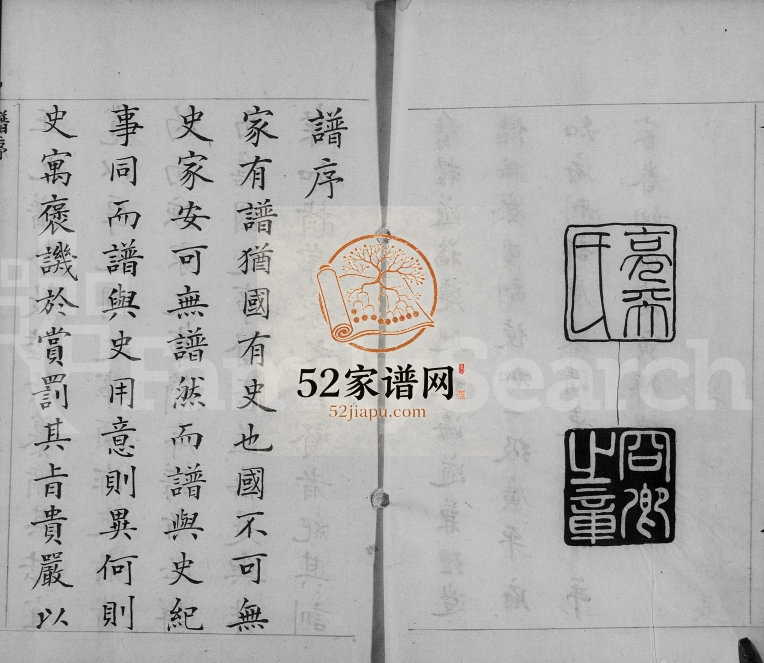 亮平氏
谷卿之章
譜序
家有譜猶國有史也國不可無
史家安可無譜然而譜與史紀
事同而譜與史用意則異何則
史寓褒譏於賞罰其旨貴嚴以
譜序
52家谱网
52jiapu.com
FamilySearch